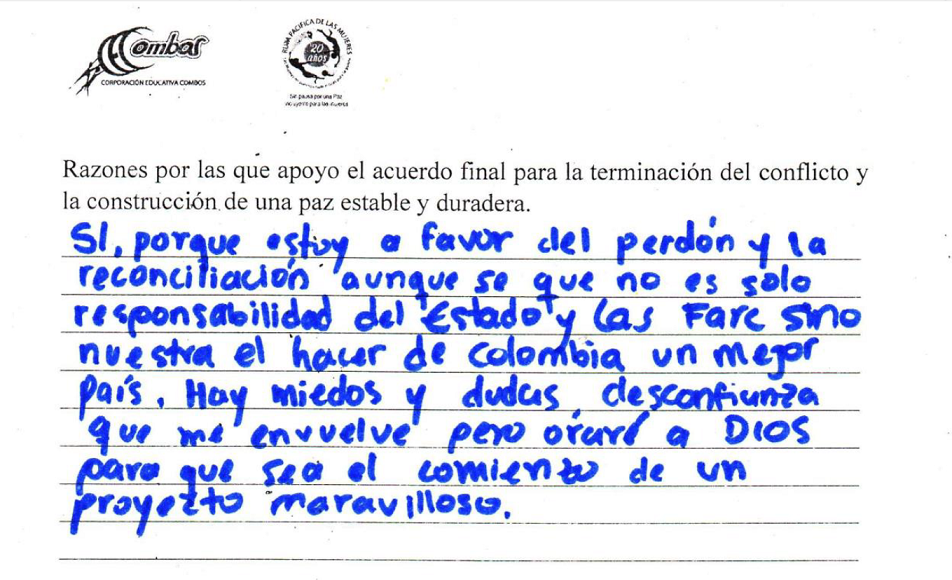 Combos
CORPORACIÓN EDUCATIVA COMBOS
RUTA PACIFICA DE LAS MUJERES
20
años
Razones por las que apoyo el acuerdo final para la terminación del conflicto y
la construcción de una paz estable y duradera.
SI, porque estoy a favor del perdón y la
reconciliación aunque se que no es solo
responsabilidad del Estado y las Farc sino
nuestra el hacer de Colombia un mejor
País. Hay miedos y dudas, desconfianza
que me envuelve pero oraré a DIOS
para que sea el comiento de un
proyezto maravilloso.